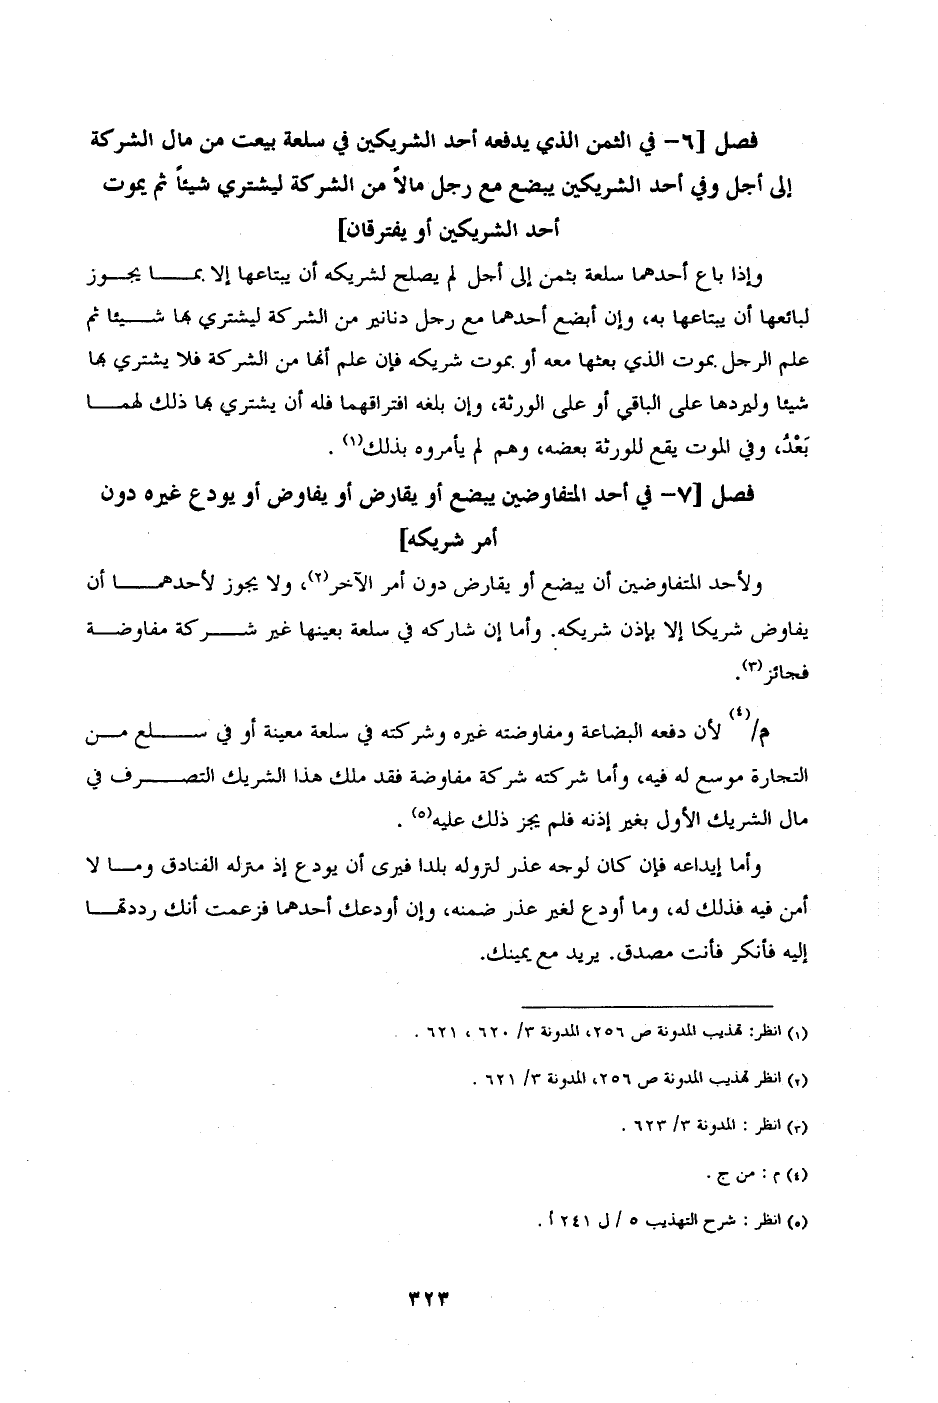 فصل [٦- في الثمن الذي يدفعه أحد الشريكين في سلعة بيعت من مال الشركة
إلى أجل وفي أحد الشريكين يبضع مع رجل مالاً من الشركة ليشتري شيئاً ثم يموت
أحد الشريكين أو يفترقان]
وإذا باع أحدهما سلعة بثمن إلى أجل لم يصلح لشريكه أن يبتاعها إلا بما يجوز
لبائعها أن يبتاعها به، وإن أبضع أحدهما مع رجل دنانير من الشركة ليشتري بها شيئا ثم
علم الرجل بموت الذي بعثها معه أو بموت شريكه فإن علم أنها من الشركة فلا يشتري بها
شيئا وليردها على الباقي أو على الورثة، وإن بلغه افتراقهما فله أن يشتري بها ذلك لهما
بَعْدُ، وفي الموت يقع للورثة بعضه، وهم لم يأمروه بذلك(١) .
فصل [٧- في أحد المتفاوضين يبضع أو يقارض أو يفاوض أو يودع غيره دون
أمر شريكه]
ولأحد المتفاوضين أن يبضع أو يقارض دون أمر الآخر(٢)، ولا يجوز لأحدهما أن
يفاوض شريكا إلا بإذن شريكه. وأما إن شاركه في سلعة بعينها غير شركة مفاوضة
فجائز(٣).
م/(٤) لأن دفعه البضاعة ومفاوضته غيره وشركته في سلعة معينة أو في سلع من
التجارة موسع له فيه، وأما شركته شركة مفاوضة فقد ملك هذا الشريك التصرف في
مال الشريك الأول بغير إذنه فلم يجز ذلك عليه(٥) .
وأما إيداعه فإن كان لوجه عذر لنزوله بلدا فيرى أن يودع إذ منزله الفنادق وما لا
أمن فيه فذلك له، وما أودع لغير عذر ضمنه، وإن أودعك أحدهما فزعمت أنك رددتها
إليه فأنكر فأنت مصدق. يريد مع يمينك.
(١) انظر: تهذيب المدونة ص ٢٥٦، المدونة ٣/ ٦٢٠ ، ٦٢١ .
(٢) انظر تهذيب المدونة ص ٢٥٦، المدونة ٣/ ٦٢١ .
(٣) انظر : المدونة ٣/ ٦٢٣ .
(٤) م : من ج .
(٥) انظر : شرح التهذيب ٥ / ل ٢٤١ أ .
٣٢٣